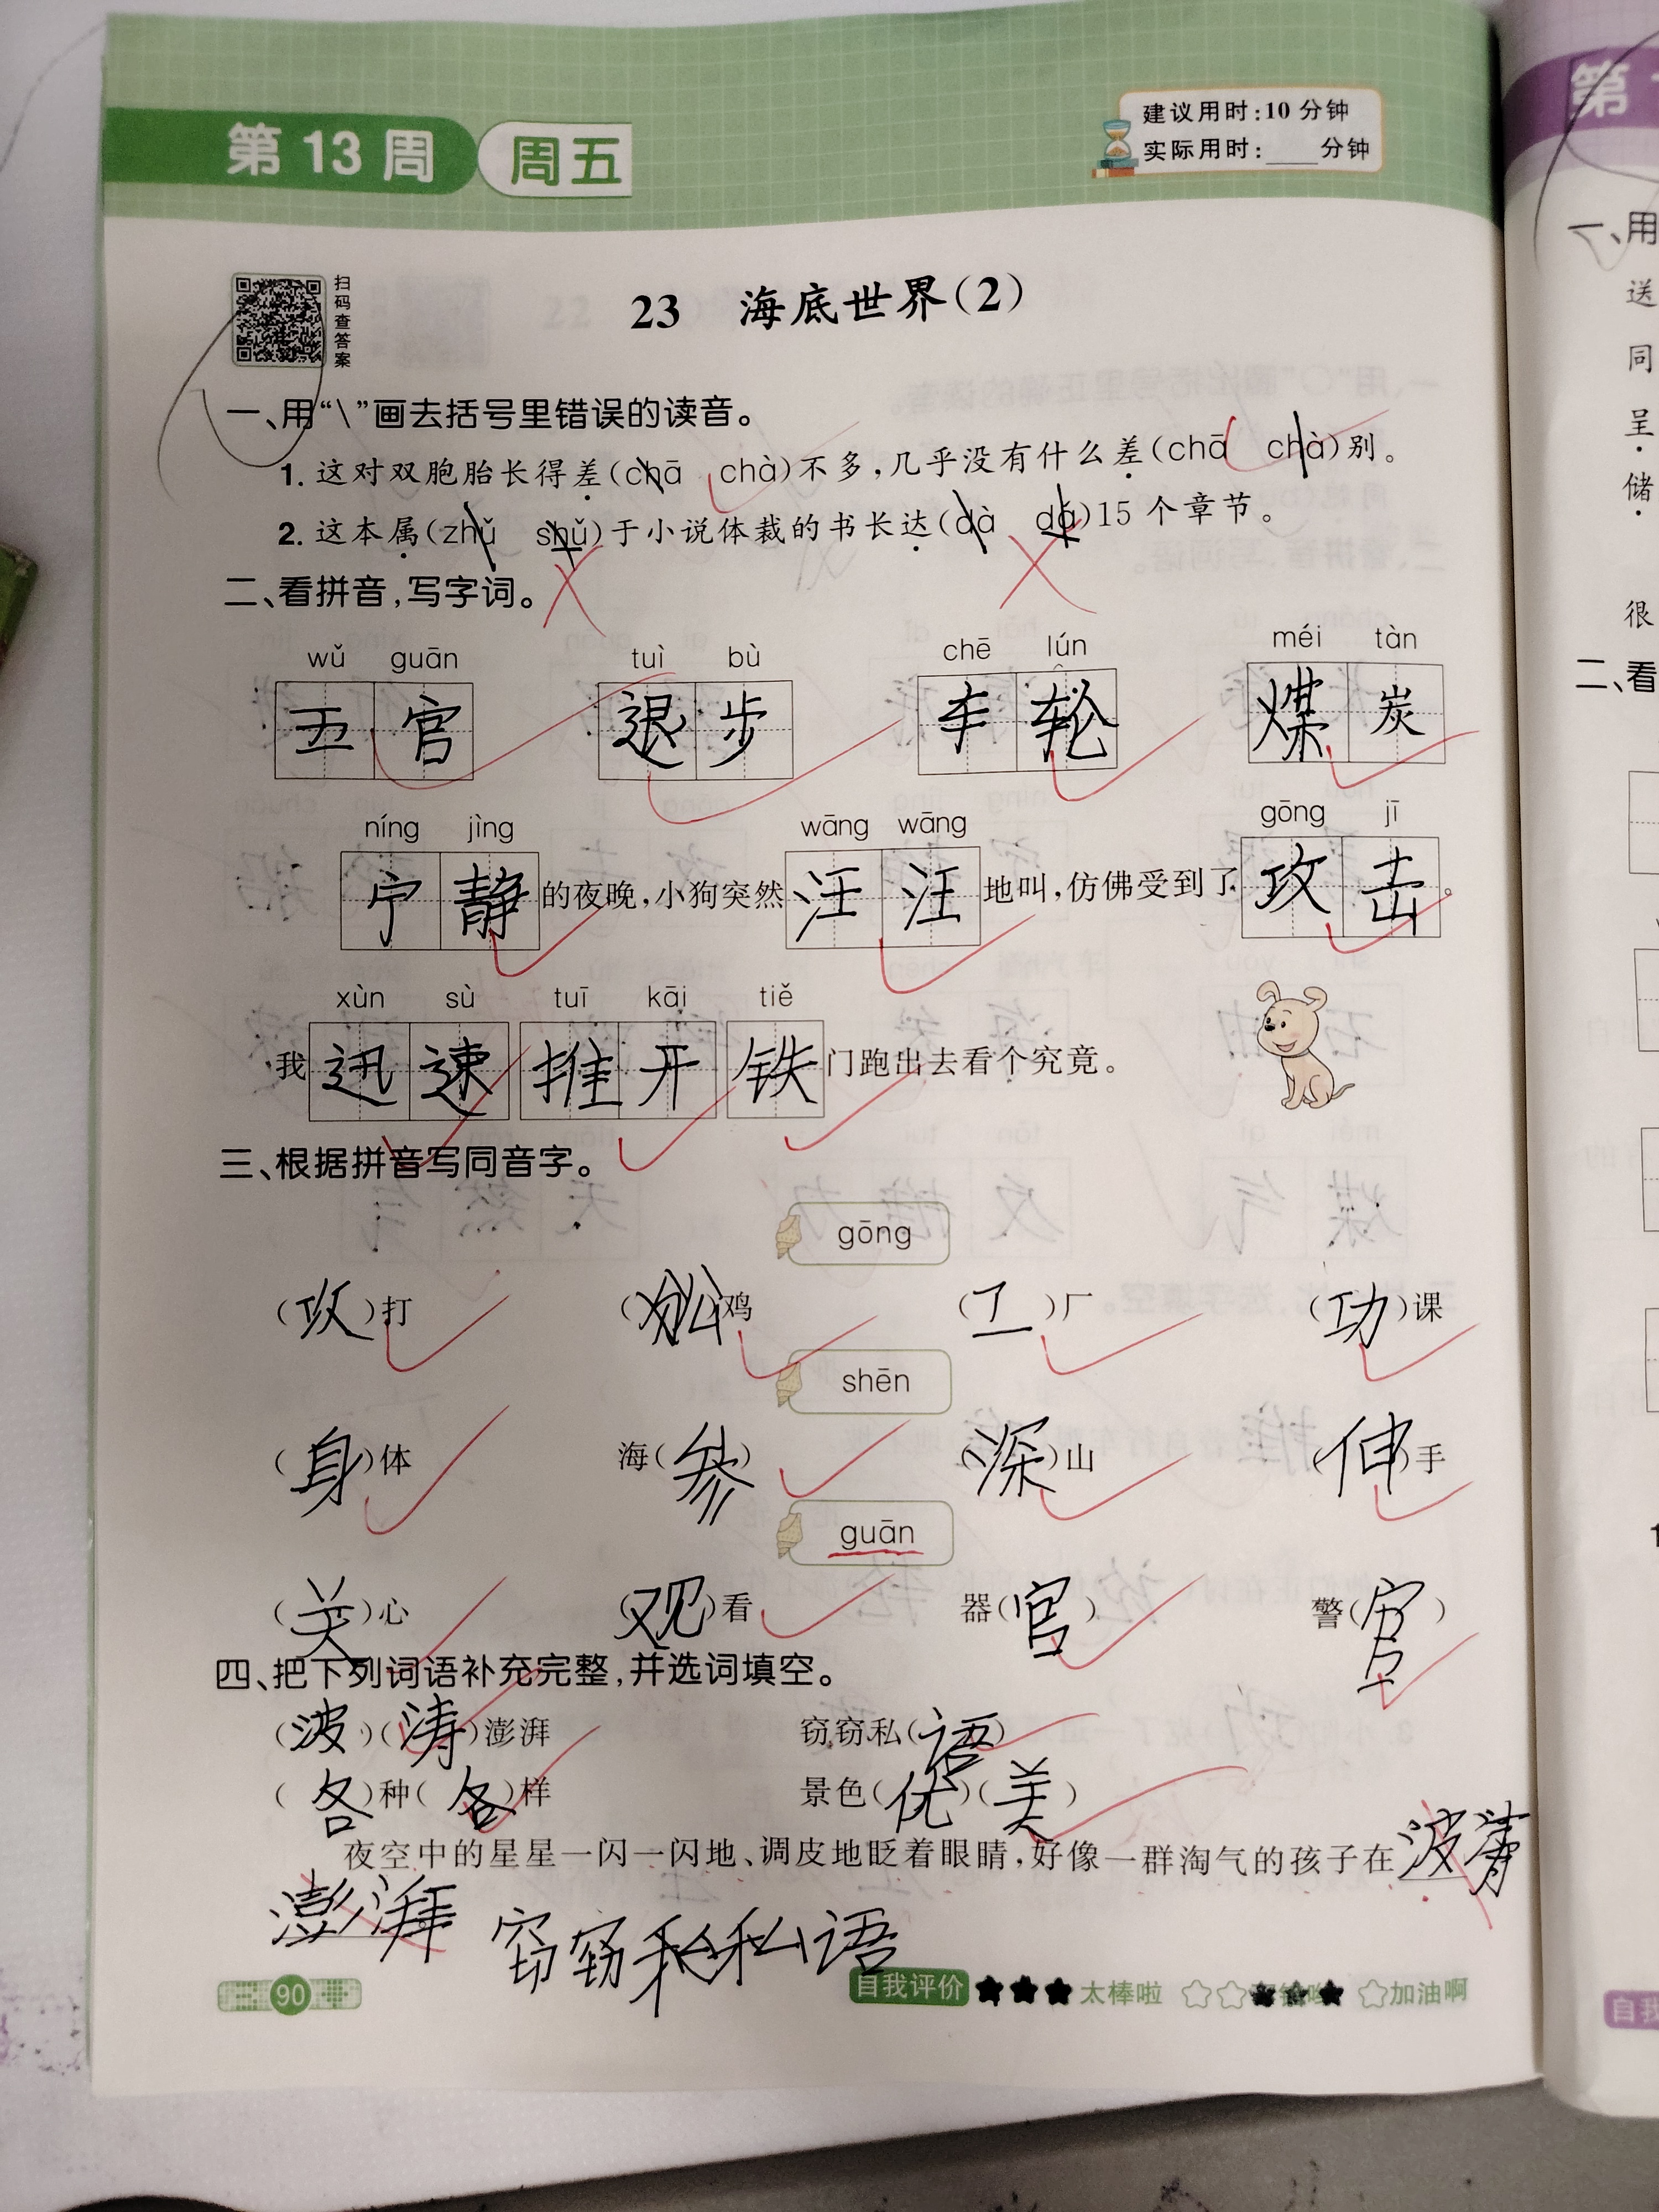 第13周 周五
建议用时:10分钟
实际用时:____分钟
扫码查答案
23 海底世界(2)
一、用“\”画去括号里错误的读音。
1. 这对双胞胎长得差(chā chà)不多,几乎没有什么差(chā chà)别。
2. 这本属(zhǔ shǔ)于小说体裁的书长达(dà dá)15个章节。
二、看拼音,写字词。
wǔ guān tuì bù chē lún méi tàn
五官 退步 车轮 煤炭
níng jìng wāng wāng gōng jī
宁静的夜晚,小狗突然汪汪地叫,仿佛受到了攻击。
xùn sù tuī kāi tiě
我迅速推开铁门跑出去看个究竟。
三、根据拼音写同音字。
gōng
(攻)打 (公)鸡 (工)厂 (功)课
shēn
(身)体 海(参) (深)山 (伸)手
guān
(关)心 (观)看 器(官) 警(官)
四、把下列词语补充完整,并选词填空。
(波)(涛)澎湃 窃窃私(语)
(各)种(各)样 景色(优)(美)
夜空中的星星一闪一闪地、调皮地眨着眼睛,好像一群淘气的孩子在波涛
澎湃 窃窃私私语
90 自我评价 太棒啦 加油啊
第
一、用
送
同
呈
储
很
二、看
1
自我